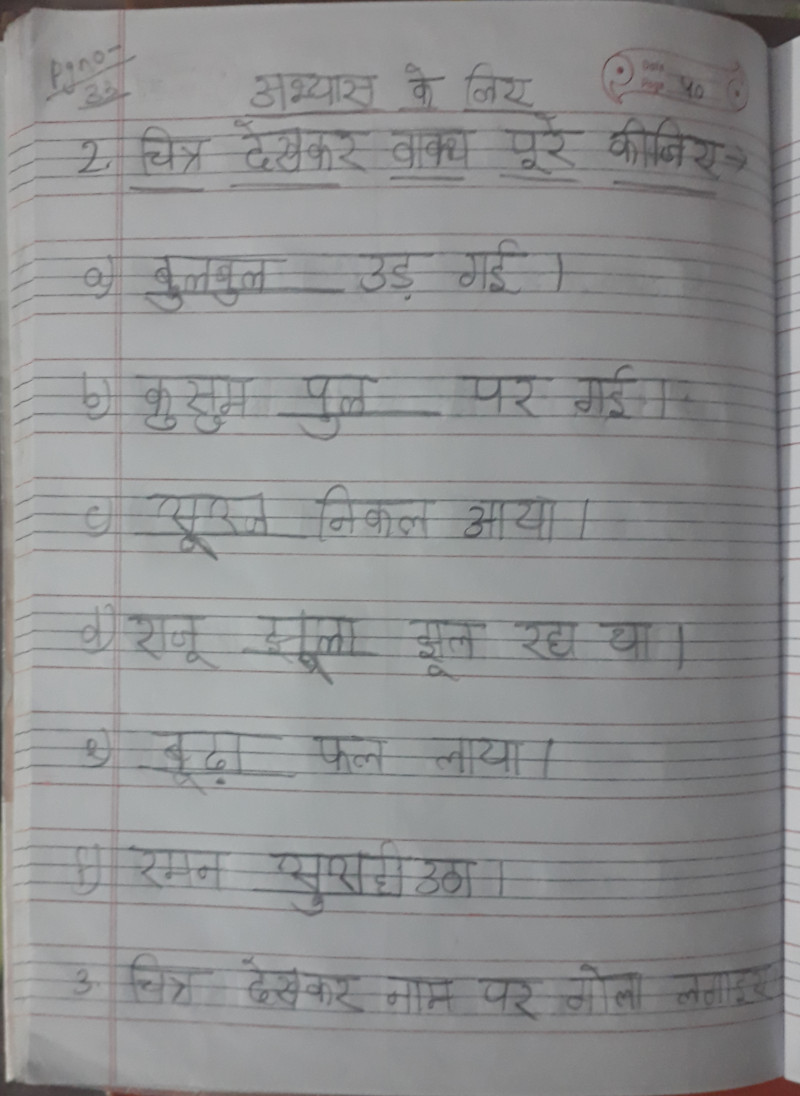 Pg no-
33
अभ्यास के लिए
Date
Page 40
2. चित्र देखकर वाक्य पूरे कीजिए →
a) बुलबुल उड़ गई ।
b) कुसुम पुल पर गई ।
c) सूरज निकल आया ।
d) राजू झूला झूल रहा था ।
e) बूढ़ा फल लाया ।
f) रमन उठा ।
3. चित्र देखकर नाम पर गोला लगाइए